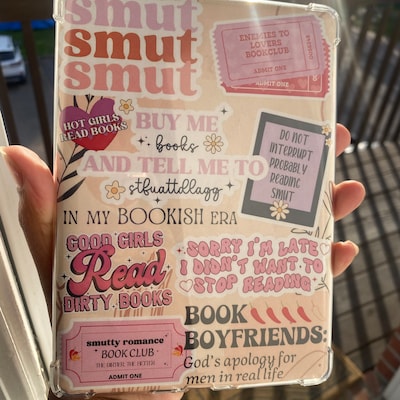 smut
smut
smut
ENEMIES TO
LOVERS
BOOKCLUB
ADMIT ONE
ADMIT ONE
HOT GIRLS
READ BOOKS
BUY ME
books
AND TELL ME TO
stfuattdlagg
DO NOT
INTERRUPT
PROBABLY
READING
SMUT
IN MY BOOKISH ERA
GOOD GIRLS
Read
DIRTY BOOKS
SORRY I'M LATE
I DIDN'T WANT TO
STOP READING
smutty romance
BOOK CLUB
THE DIRTIER, THE BETTER
ADMIT ONE
BOOK
BOYFRIENDS:
God's apology for
men in real life